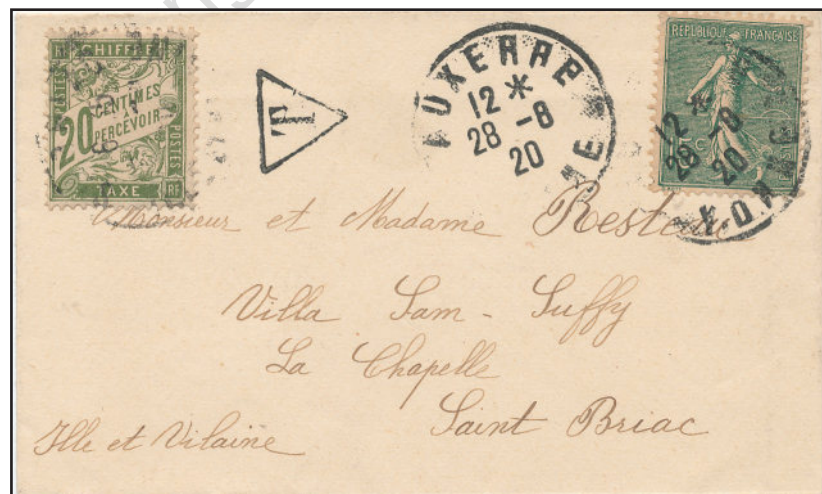 RF CHIFFRE
POSTES
20 CENTIMES
A
PERCEVOIR
POSTES
TAXE RF
T
AUXERRE
12 *
28 -8
20
REPUBLIQUE FRANÇAISE
15 C
12 *
28 -8
20
Monsieur et Madame
Villa Sam-Suffy
La Chapelle
Saint Briac
Ille et Vilaine